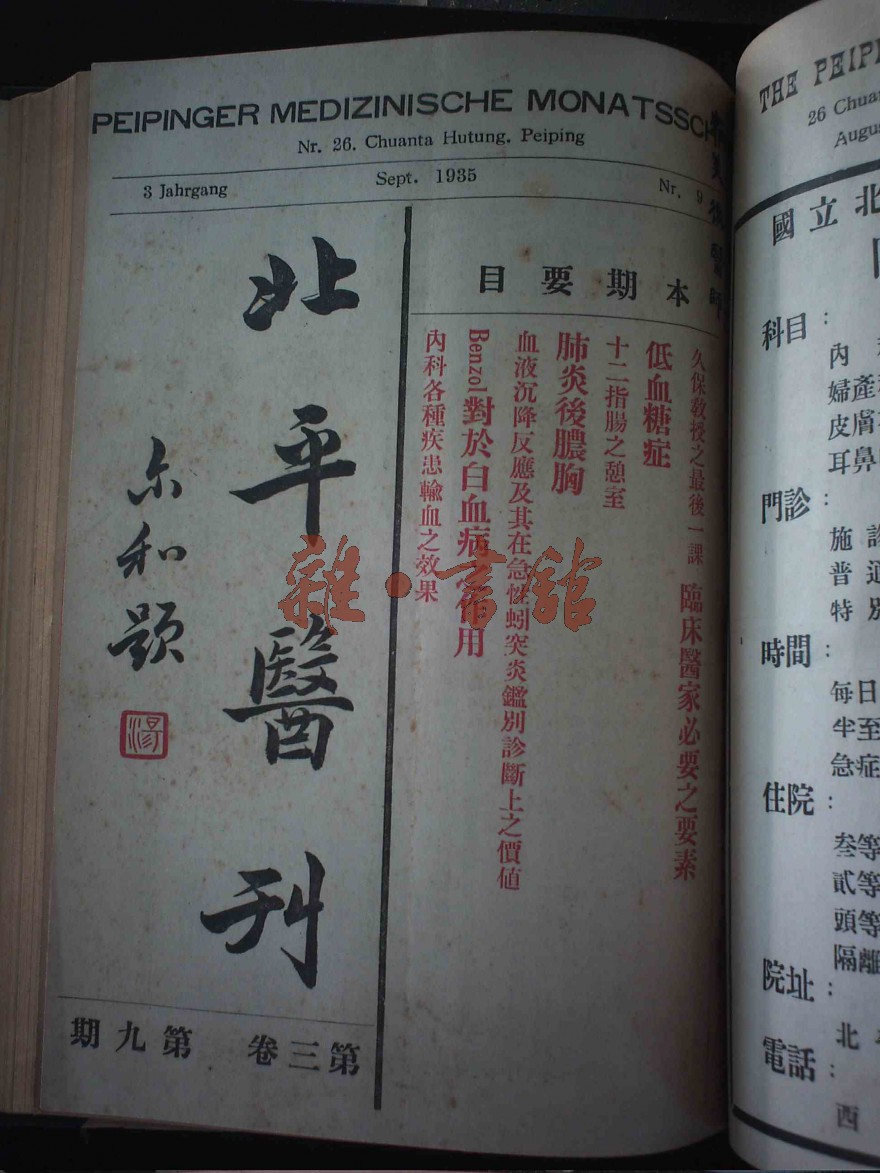 PEIPINGER MEDIZINISCHE MONATSSCH
Nr. 26. Chuanta Hutung. Peiping
3 Jahrgang
Sept. 1935
Nr. 9
本期要目
久保敎授之最後一課 臨床醫家必要之要素
低血糖症
十二指腸之憩室
肺炎後膿胸
血液沉降反應及其在急性蚓突炎鑑別診斷上之價値
Benzol對於白血病之作用
內科各種疾患輸血之效果
北平醫刊
尔和題
湯
第三卷 第九期
雜·書館
THE PEIP
26 Chua
Augus
國立北
科目：
內
婦產科
皮膚
耳鼻
門診：
施診
普通
特別
時間：
每日
半至
急症
住院：
叁等
貳等
頭等
隔離
院址：
北
電話：
西